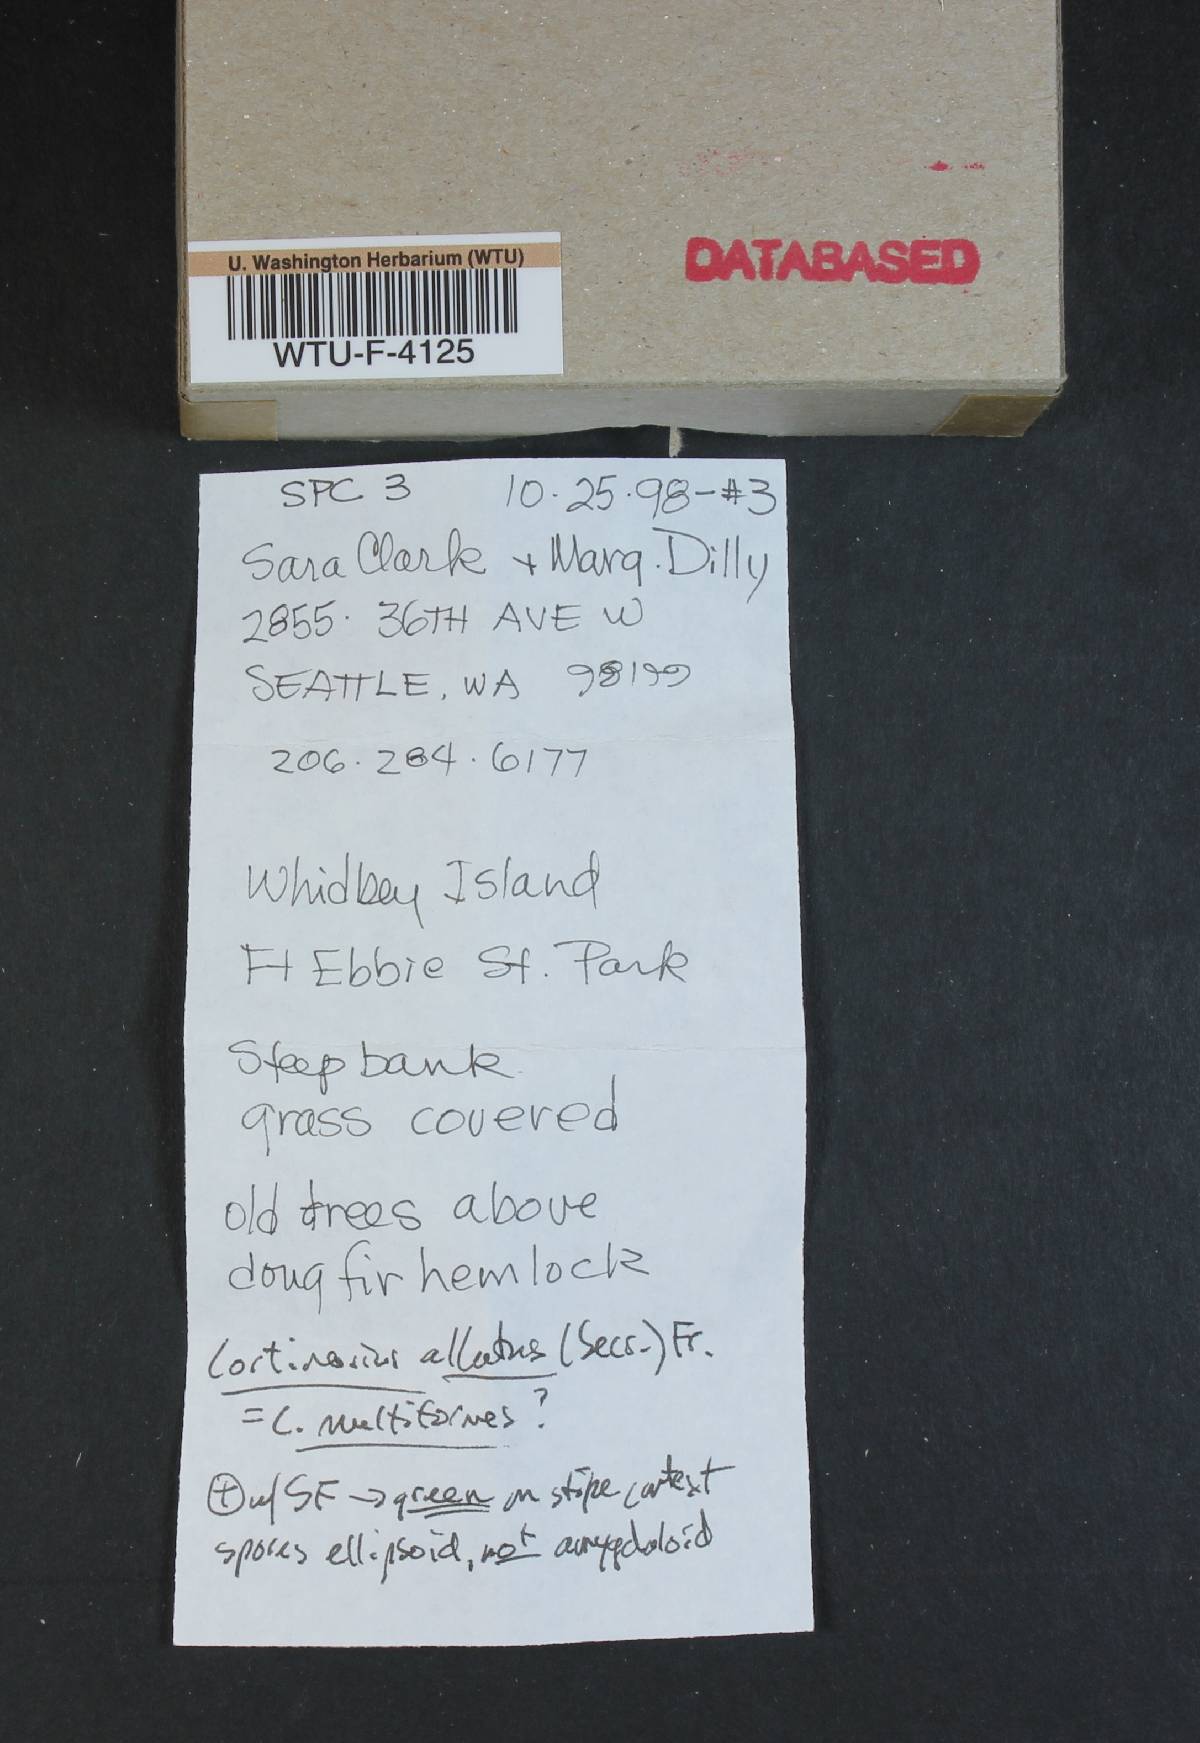 DATABASED
U. Washington Herbarium (WTU)
WTU-F-4125
SPC 3 10.25.98-#3
Sara Clark + Marg. Dilly
2855. 36TH AVE W
SEATTLE, WA 98199
206.284.6177
Whidbey Island
Ft Ebbie St. Park
Steep bank
grass covered
old trees above
doug fir hemlock
Cortinarius allutus (Secr.) Fr.
= C. multiformes ?
⊕ w/ SF → green on stipe context
spores ellipsoid, not amygdaloid